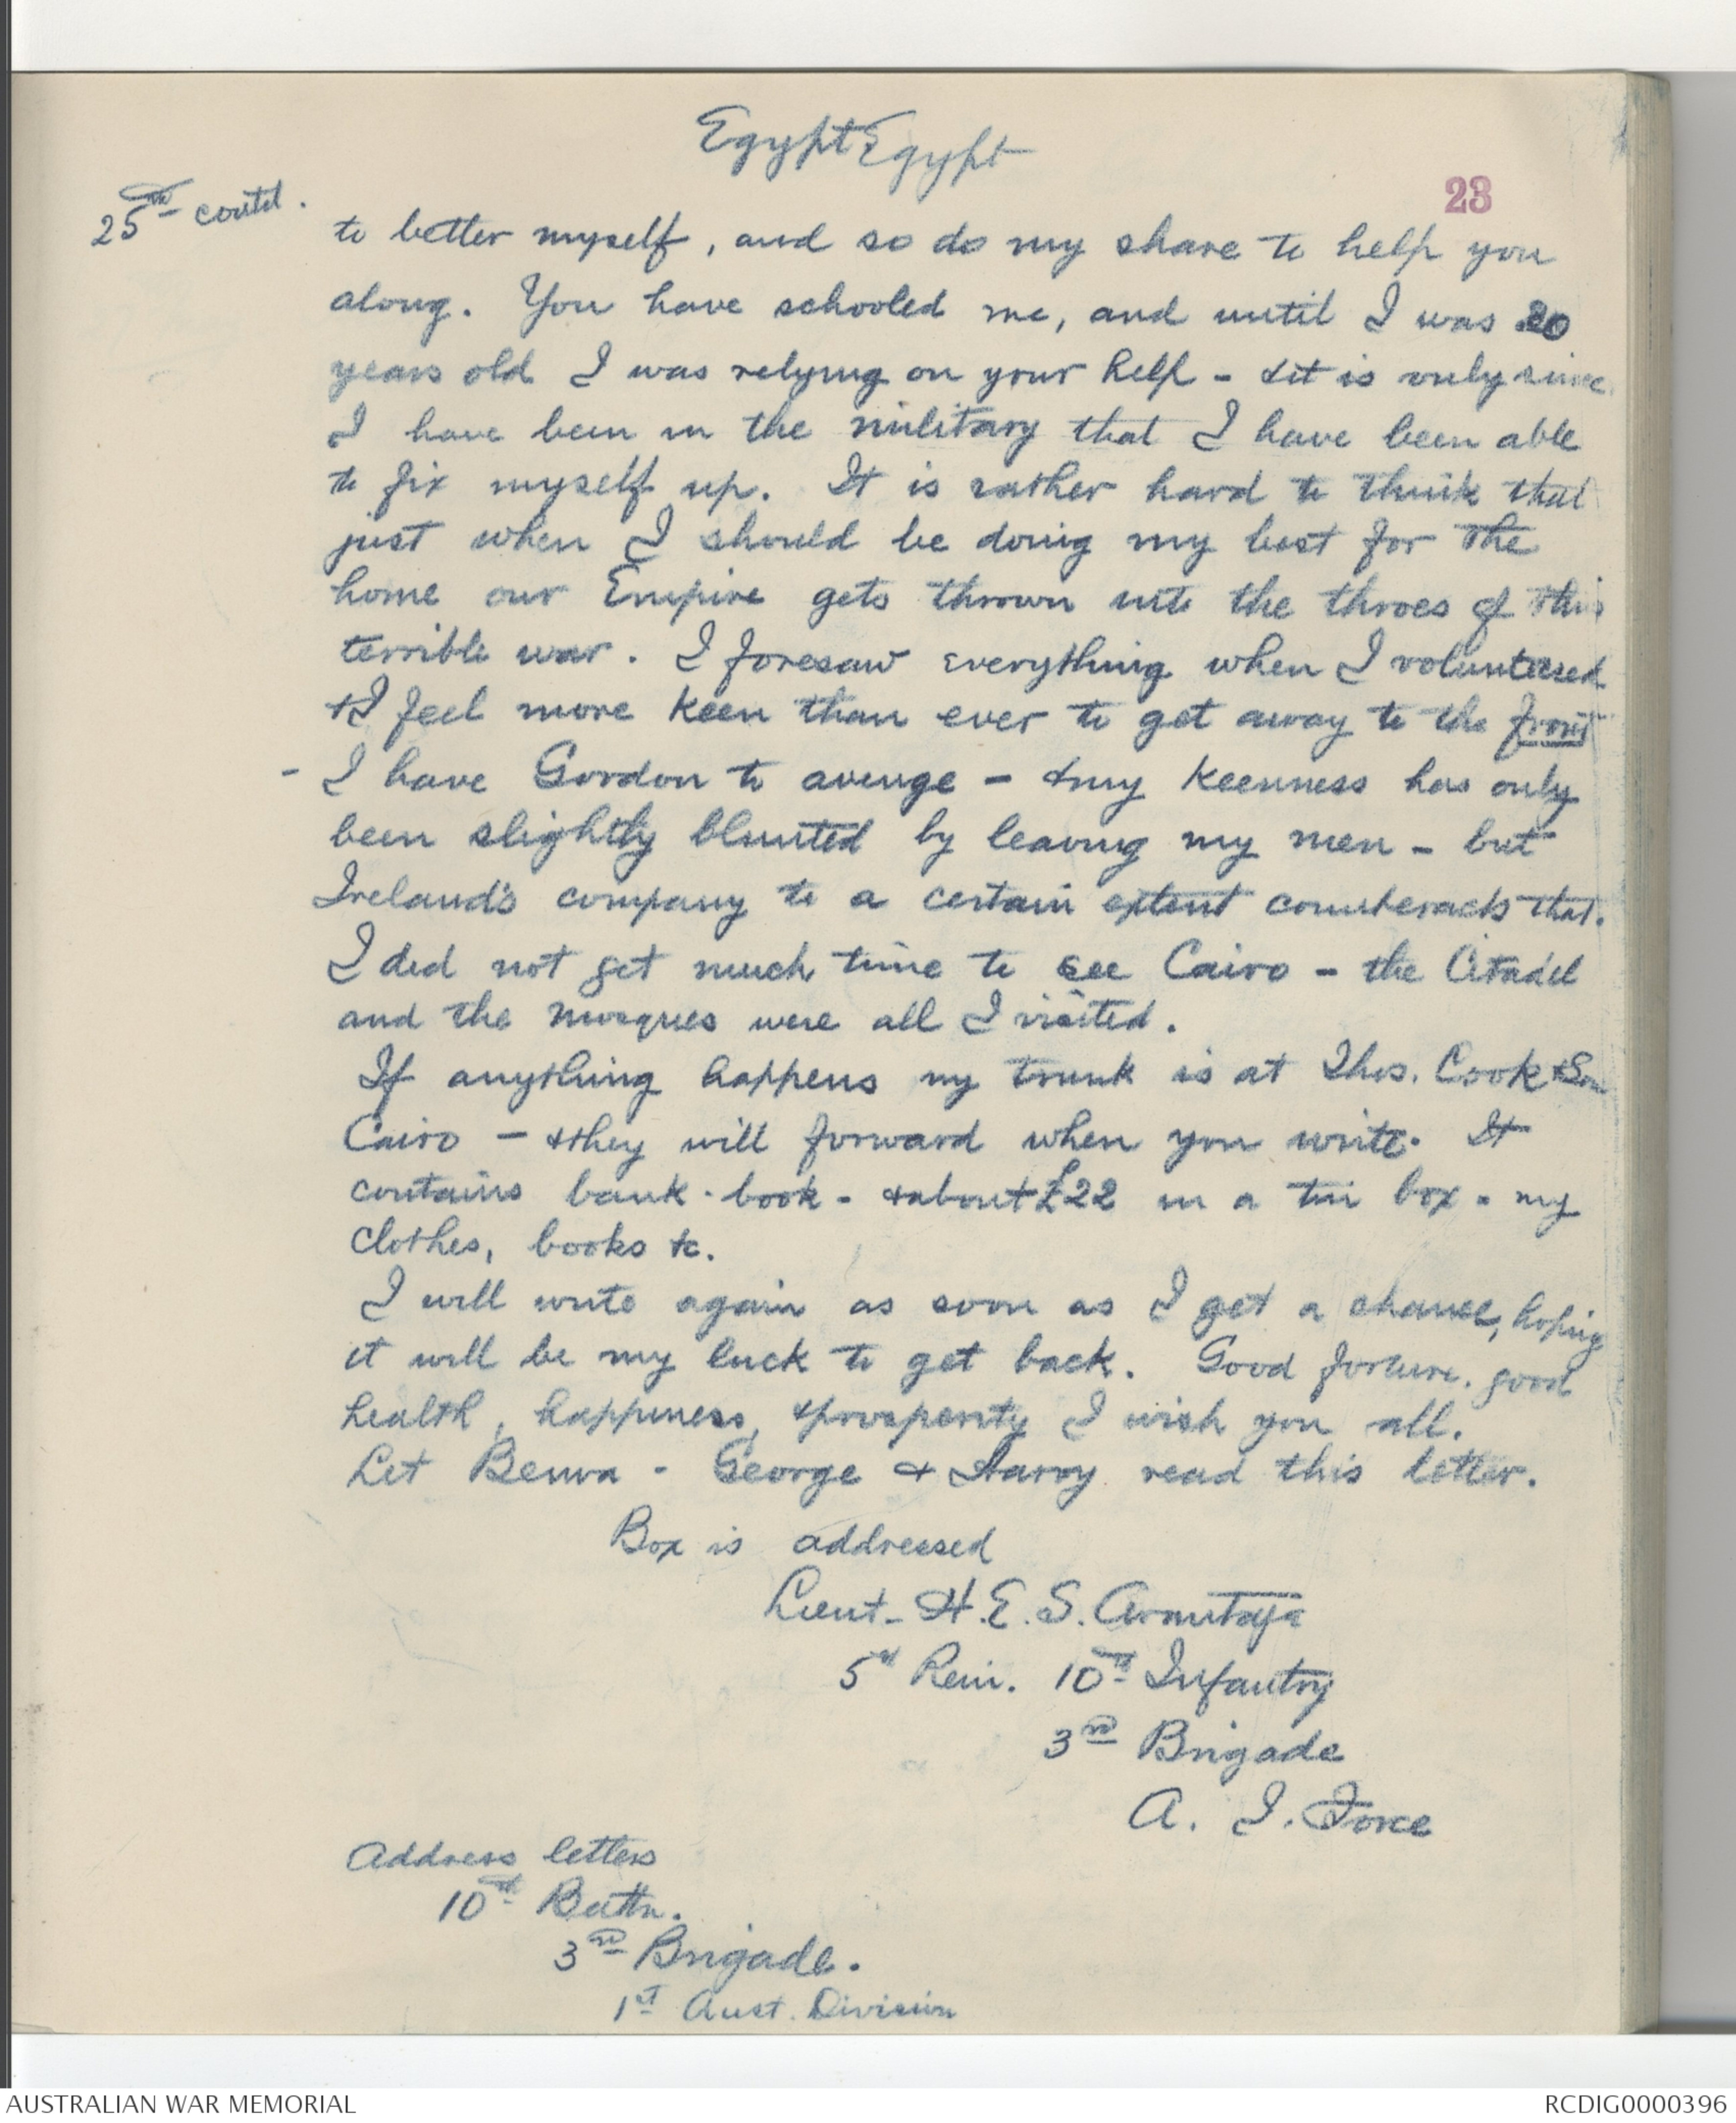 Egypt Egypt
23
25th contd.
to better myself, and so do my share to help you
along. You have schooled me, and until I was 20
years old I was relying on your help - & it is only since
I have been in the military that I have been able
to fix myself up. It is rather hard to think that
just when I should be doing my best for the
home our Empire gets thrown into the throes of this
terrible war. I foresaw everything when I volunteered
& I feel more keen than ever to get away to the front
- I have Gordon to avenge - & my keenness has only
been slightly blunted by leaving my men - but
Ireland's company to a certain extent counteracts that.
I did not get much time to see Cairo - the Citadel
and the mosques were all I visited.
If anything happens my trunk is at Thos. Cook & Son
Cairo - & they will forward when you write. It
contains bank-book - & about £22 in a tin box - my
clothes, books &c.
I will write again as soon as I get a chance, hoping
it will be my luck to get back. Good fortune. good
health, happiness, & prosperity I wish you all.
Let - George & Harry read this letter.
Box is addressed
Lieut- H.E.S. Armitage
5th Rein. 10th Infantry
3rd Brigade
A. I. Force
Address letters
10th Battn.
3rd Brigade.
1st Aust. Division
AUSTRALIAN WAR MEMORIAL
RCDIG0000396